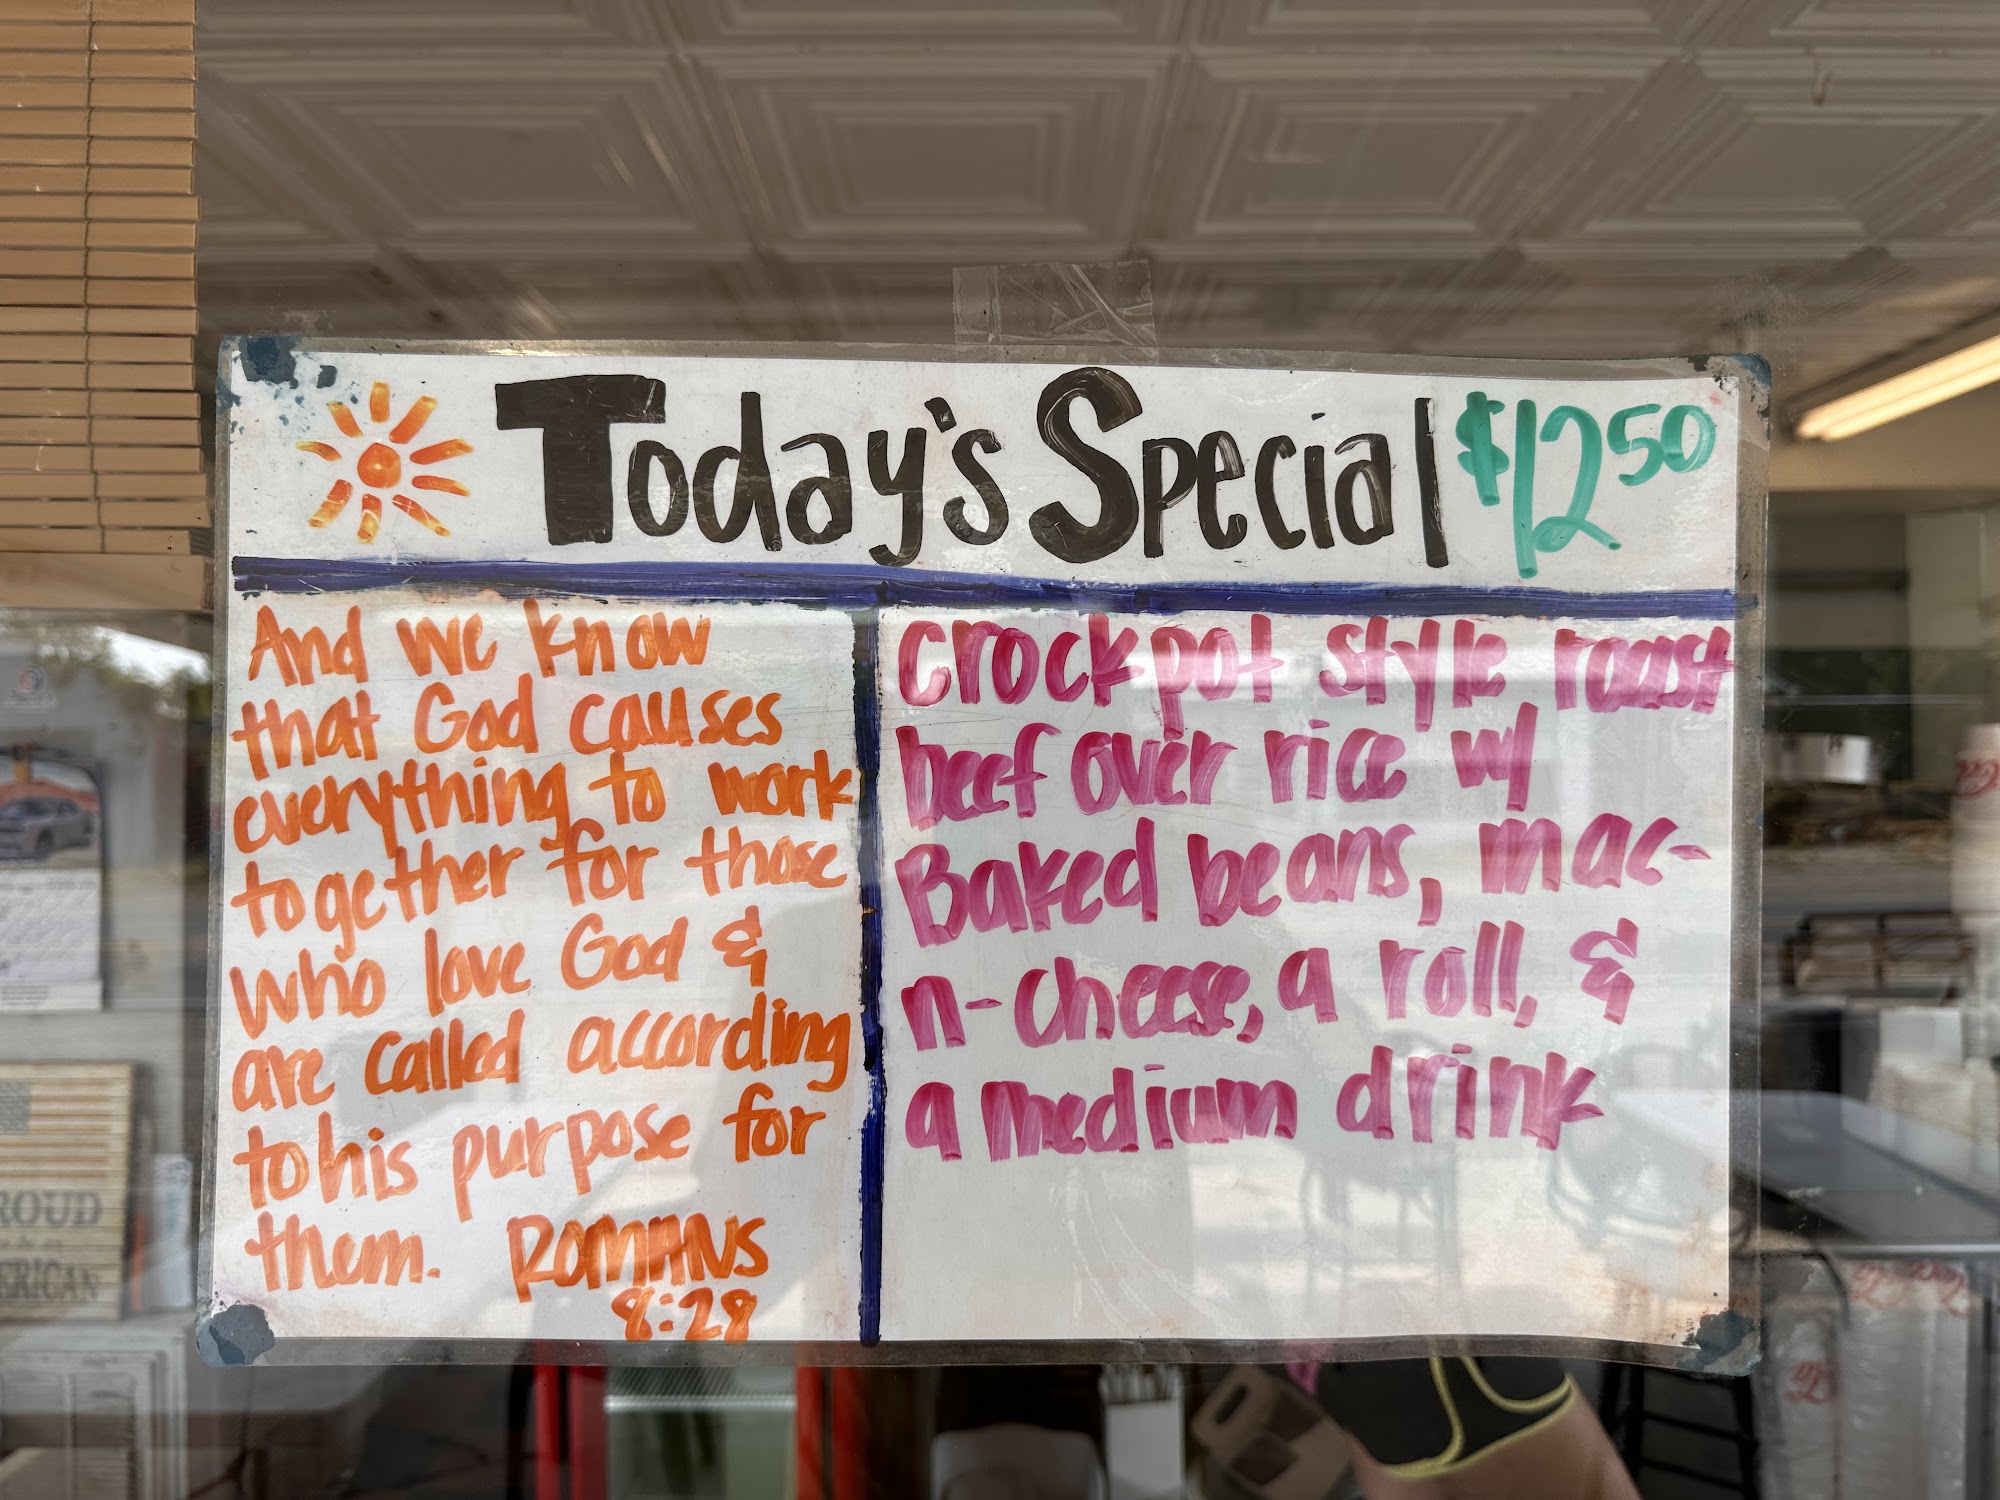 Today's Special $12.50
And we know
that God causes
everything to work
together for those
who love God &
are called according
to his purpose for
them. Romans
8:28
Crockpot style roast
beef over rice w/
Baked beans, mac-
n-cheese, a roll, &
a medium drink
ROUD
ERICAN